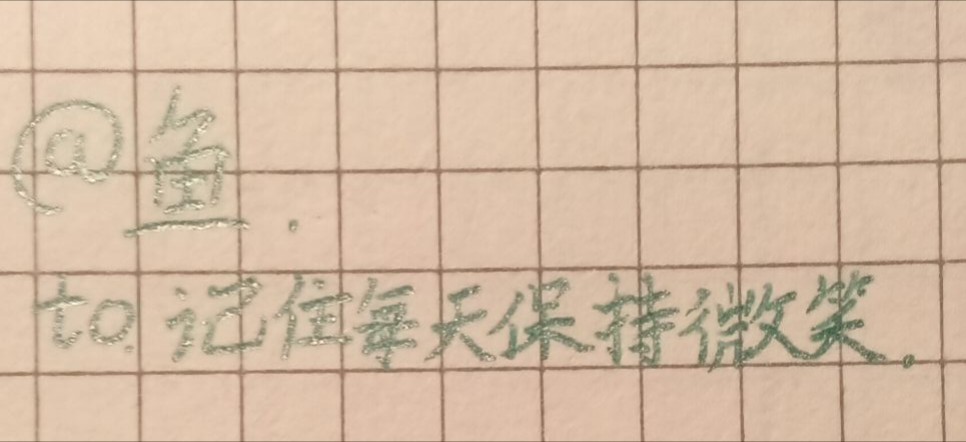 @鱼.
to.记住每天保持微笑.